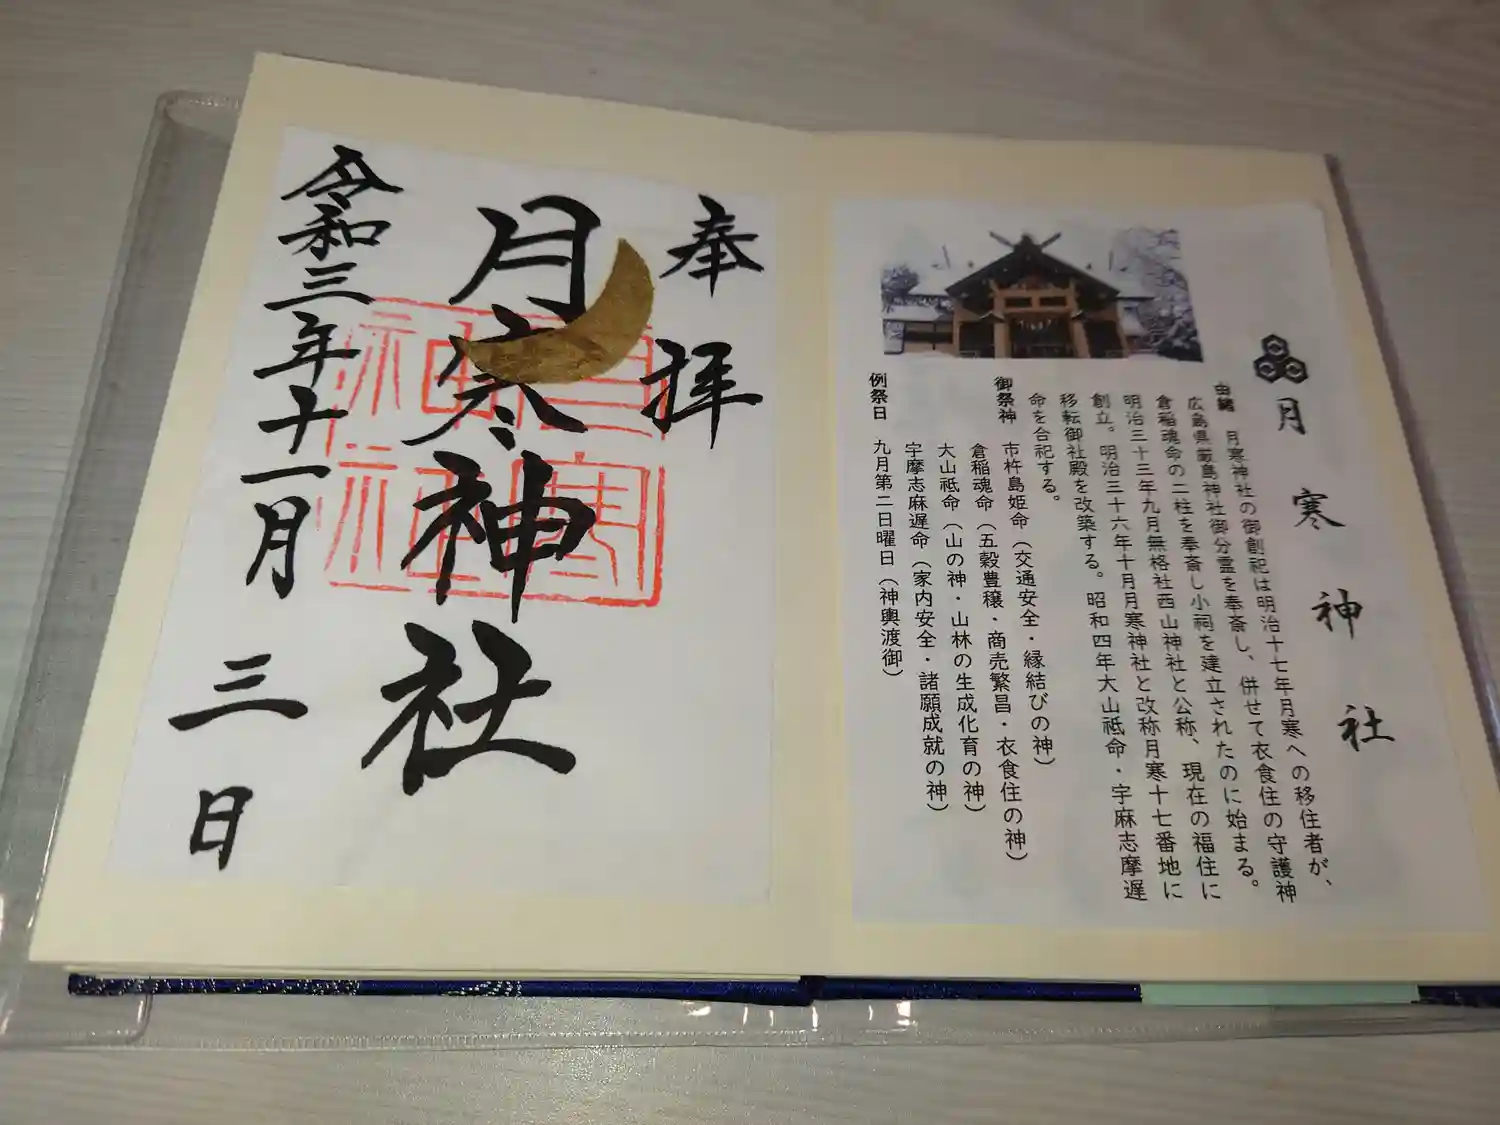 奉拝
月寒神社
令和三年十一月三日
月寒神社
由緒 月寒神社の御創祀は明治十七年月寒への移住者が、
広島県厳島神社御分霊を奉斎し、併せて衣食住の守護神
倉稲魂命の二柱を奉斎し小祠を建立されたのに始まる。
明治三十三年九月無格社西山神社と公称、現在の福住に
創立。明治三十六年十月月寒神社と改称月寒十七番地に
移転御社殿を改築する。昭和四年大山祗命・宇麻志摩遅
命を合祀する。
御祭神 市杵島姫命（交通安全・縁結びの神）
倉稲魂命（五穀豊穣・商売繁昌・衣食住の神）
大山祗命（山の神・山林の生成化育の神）
宇摩志麻遅命（家内安全・諸願成就の神）
例祭日 九月第二日曜日（神輿渡御）